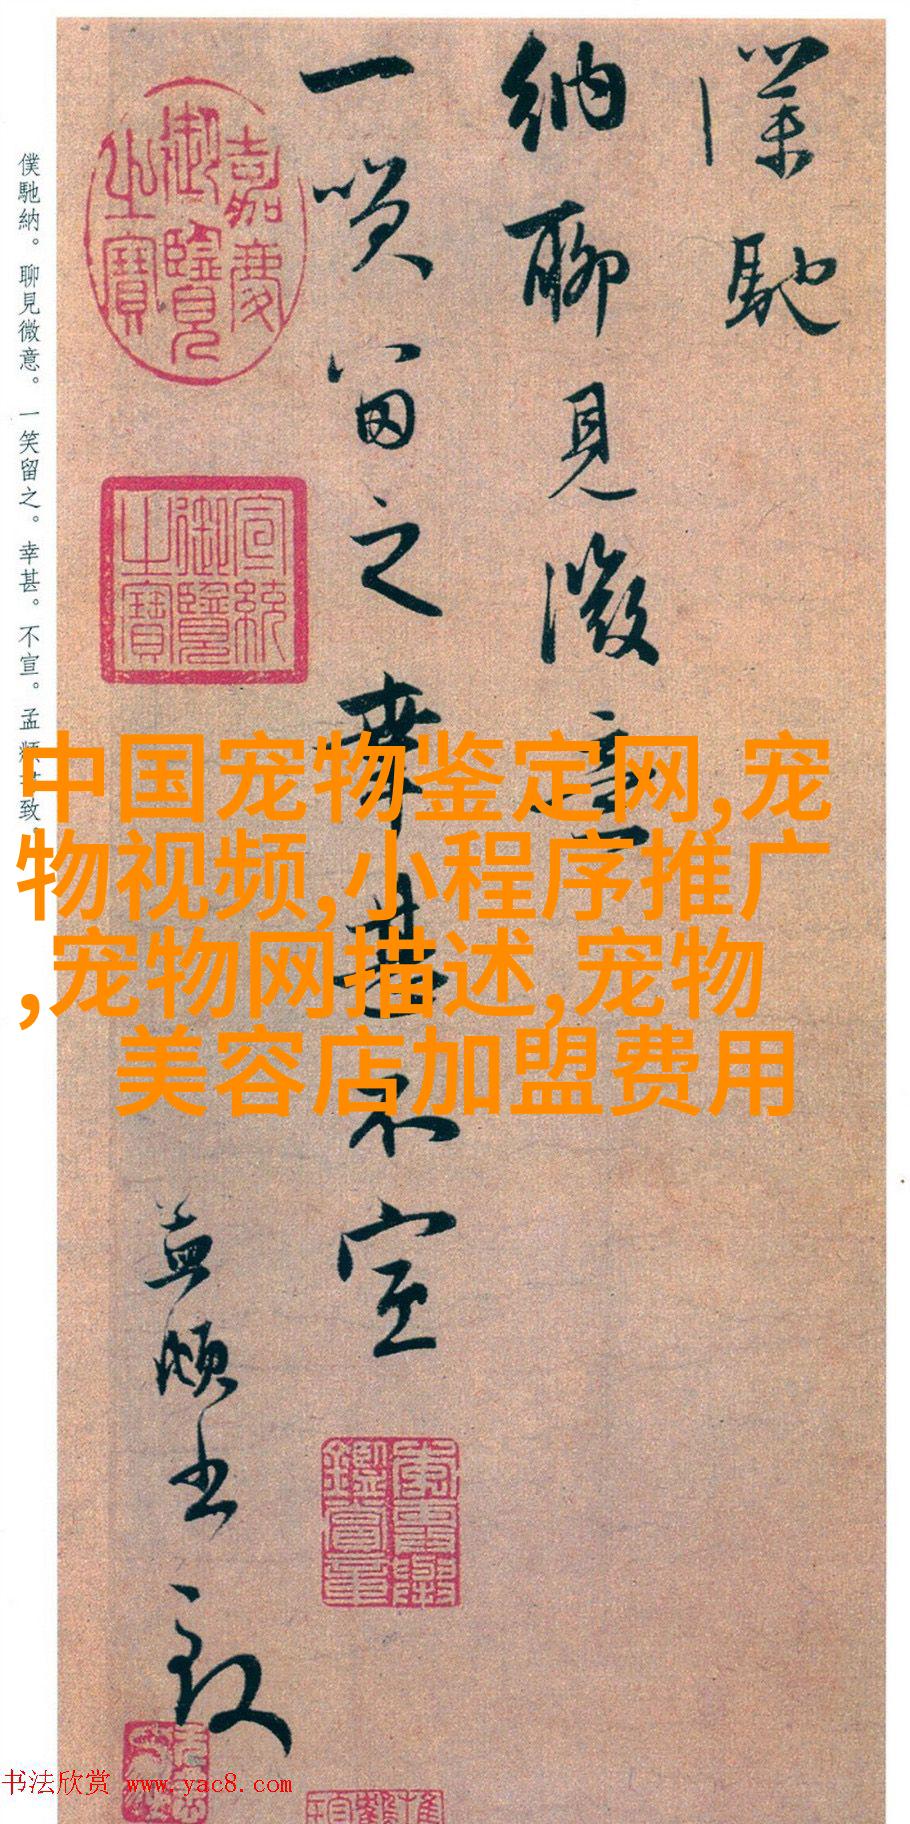 僕馳
納聊見微意
一笑留之幸甚不宣
孟頫书致
嘉慶御覽之寶
宣統御覽之寶
僕馳納。聊見微意。一笑留之。幸甚。不宣。孟頫书致
中国宠物鉴定网,宠
物视频,小程序推广
,宠物网描述,宠物
美容店加盟费用
书法欣赏 www.yac8.com